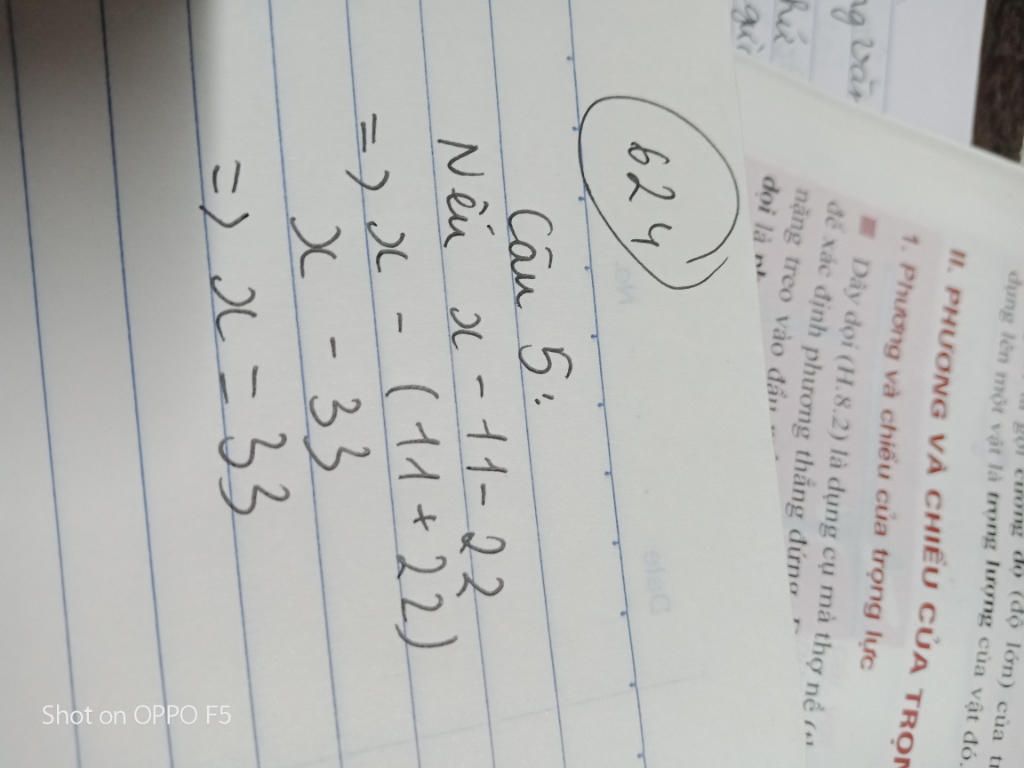 624)
Câu 5:
Nếu x - 11 - 22
=> x - (11 + 22)
x - 33
=> x = 33
dụng lên một vật là trọng lượng của vật đó.
II. PHƯƠNG VÀ CHIỀU CỦA
1. Phương và chiều của trọng lực
Dây dọi (H.8.2) là dụng cụ mà thợ nề
để xác định phương thẳng đứng.
nặng treo vào đầu
dọi là
Shot on OPPO F5